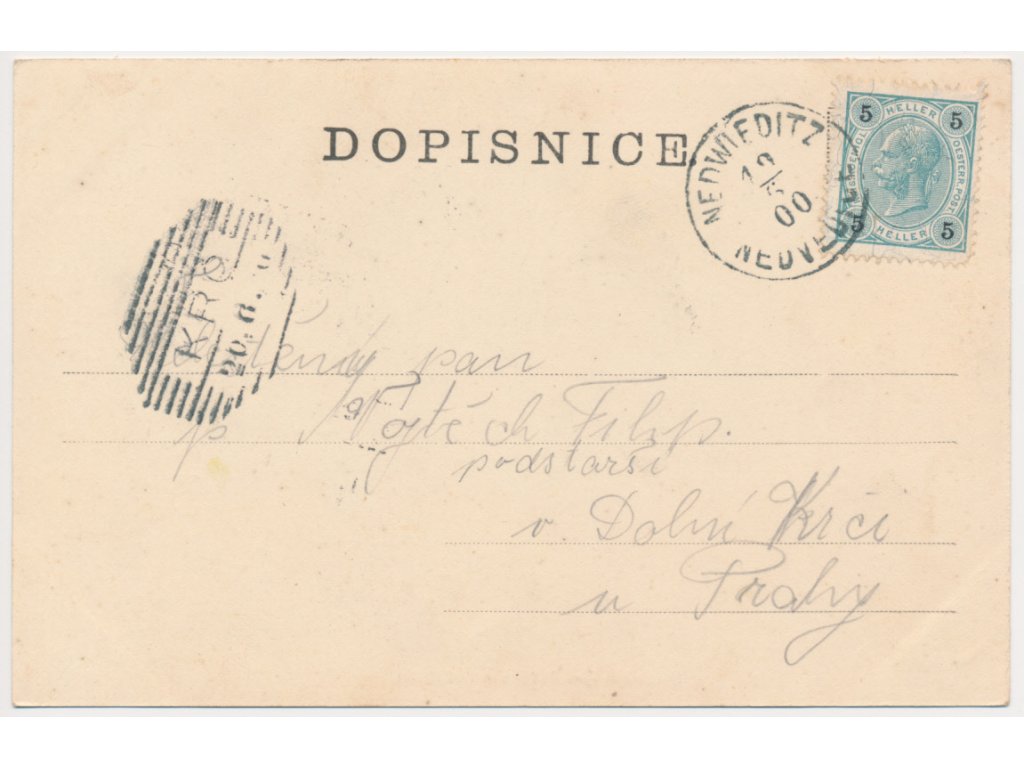 DOPISNICE.
NEDWIEDITZ
00
NEDVĚDICE
5 HELLER 5
OESTERR. POST
5 HELLER 5
KRČ
20. 6. 0
Ctěný pan
p Vojtěch Filip.
podstarší
v Dolní Krči
u Prahy